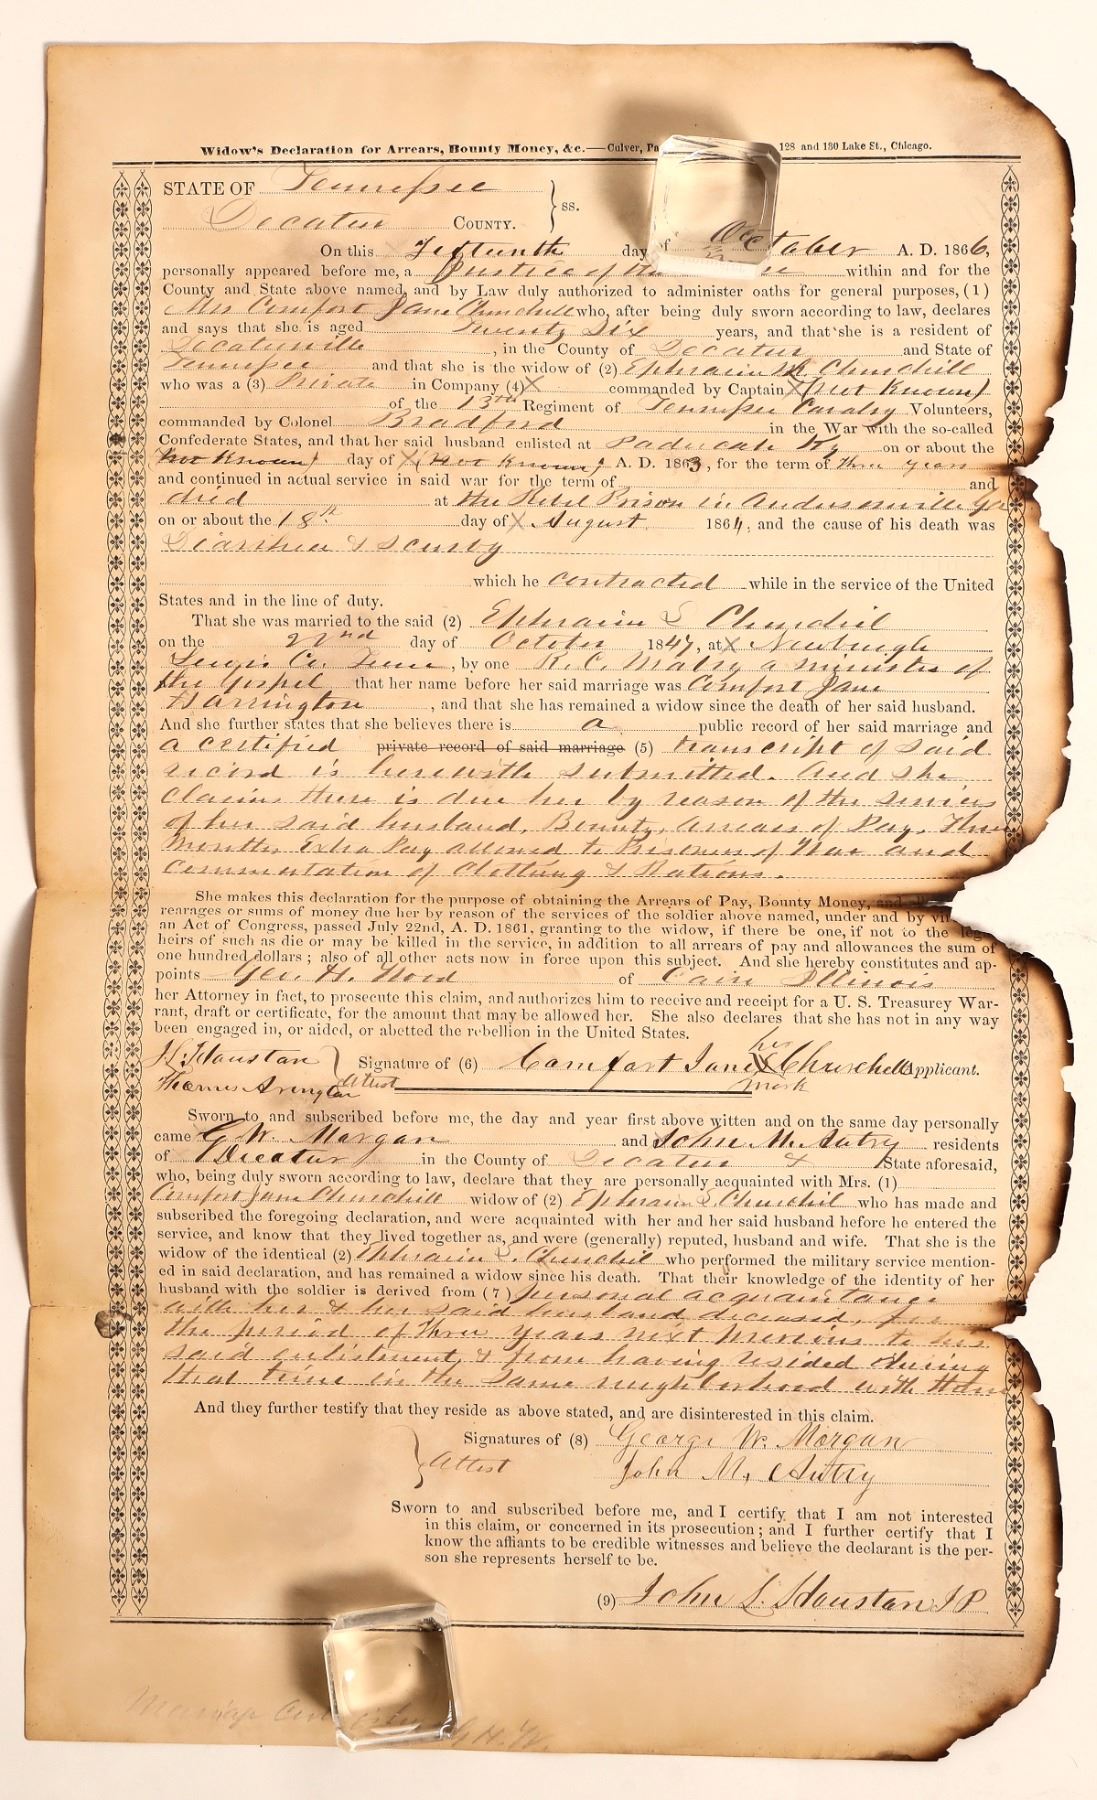 Widow's Declaration for Arrears, Bounty Money, &c.—Culver, Pa 128 and 130 Lake St., Chicago.
STATE OF Tennessee
Decatur COUNTY. } ss.
On this Fifteenth day of October A. D. 1866,
personally appeared before me, a Justice of the within and for the
County and State above named, and by Law duly authorized to administer oaths for general purposes, (1)
Mrs Comfort Jane Churchill who, after being duly sworn according to law, declares
and says that she is aged Twenty Six years, and that she is a resident of
Decaturville, in the County of Decatur and State of
Tennessee and that she is the widow of (2) Ephraim Churchill
who was a (3) Private in Company (4) X commanded by Captain X (Not Known)
of the 13th Regiment of Tennessee Cavalry Volunteers,
commanded by Colonel Bradford in the War with the so-called
Confederate States, and that her said husband enlisted at Paducah Ky on or about the
(Not Known) day of X (Not Known) A. D. 1863, for the term of three years
and continued in actual service in said war for the term of and
died at the Rebel Prison in Andersonville Ga
on or about the 18th day of X August 1864, and the cause of his death was
Diarrhea & Scurvy
which he contracted while in the service of the United
States and in the line of duty.
That she was married to the said (2) Ephraim L Churchil
on the 22nd day of October 1847, at X Newburgh
Lewis Co. Tenn, by one R. C. Mabry a minister of
the Gospel that her name before her said marriage was Comfort Jane
Harrington, and that she has remained a widow since the death of her said husband.
And she further states that she believes there is a public record of her said marriage and
a certified private record of said marriage (5) transcript of said
record is herewith submitted. And she
claims there is due her by reason of the services
of her said husband, Bounty, Arrears of Pay, Three
Months Extra Pay allowed to Prisoners of War and
commutation of Clothing & Rations.
She makes this declaration for the purpose of obtaining the Arrears of Pay, Bounty Money, and
rearages or sums of money due her by reason of the services of the soldier above named, under and by vir
an Act of Congress, passed July 22nd, A. D. 1861, granting to the widow, if there be one, if not to the leg
heirs of such as die or may be killed in the service, in addition to all arrears of pay and allowances the sum of
one hundred dollars; also of all other acts now in force upon this subject. And she hereby constitutes and ap-
points Geo. H. Wood of Cairo Illinois
her Attorney in fact, to prosecute this claim, and authorizes him to receive and receipt for a U. S. Treasurey War-
rant, draft or certificate, for the amount that may be allowed her. She also declares that she has not in any way
been engaged in, or aided, or abetted the rebellion in the United States.
J L Houstan } Signature of (6) Comfort Jane her X mark Churchell Applicant.
Thomas Arington Attest
Sworn to and subscribed before me, the day and year first above witten and on the same day personally
came G W. Morgan and John M. Autry residents
of Decatur in the County of Decatur & State aforesaid,
who, being duly sworn according to law, declare that they are personally acquainted with Mrs. (1)
Comfort Jane Churchill widow of (2) Ephraim L Churchil who has made and
subscribed the foregoing declaration, and were acquainted with her and her said husband before he entered the
service, and know that they lived together as, and were (generally) reputed, husband and wife. That she is the
widow of the identical (2) Ephraim L. Churchil who performed the military service mention-
ed in said declaration, and has remained a widow since his death. That their knowledge of the identity of her
husband with the soldier is derived from (7) personal acquaintance
with her & her said husband deceased, for
the period of three years next previous to his
said enlistment, & from having resided during
that time in the same neighborhood with them
And they further testify that they reside as above stated, and are disinterested in this claim.
Signatures of (8) George W. Morgan
} Attest John M. Autry
Sworn to and subscribed before me, and I certify that I am not interested
in this claim, or concerned in its prosecution; and I further certify that I
know the affiants to be credible witnesses and believe the declarant is the per-
son she represents herself to be.
(9) John L. Houstan J P
G. H. W.